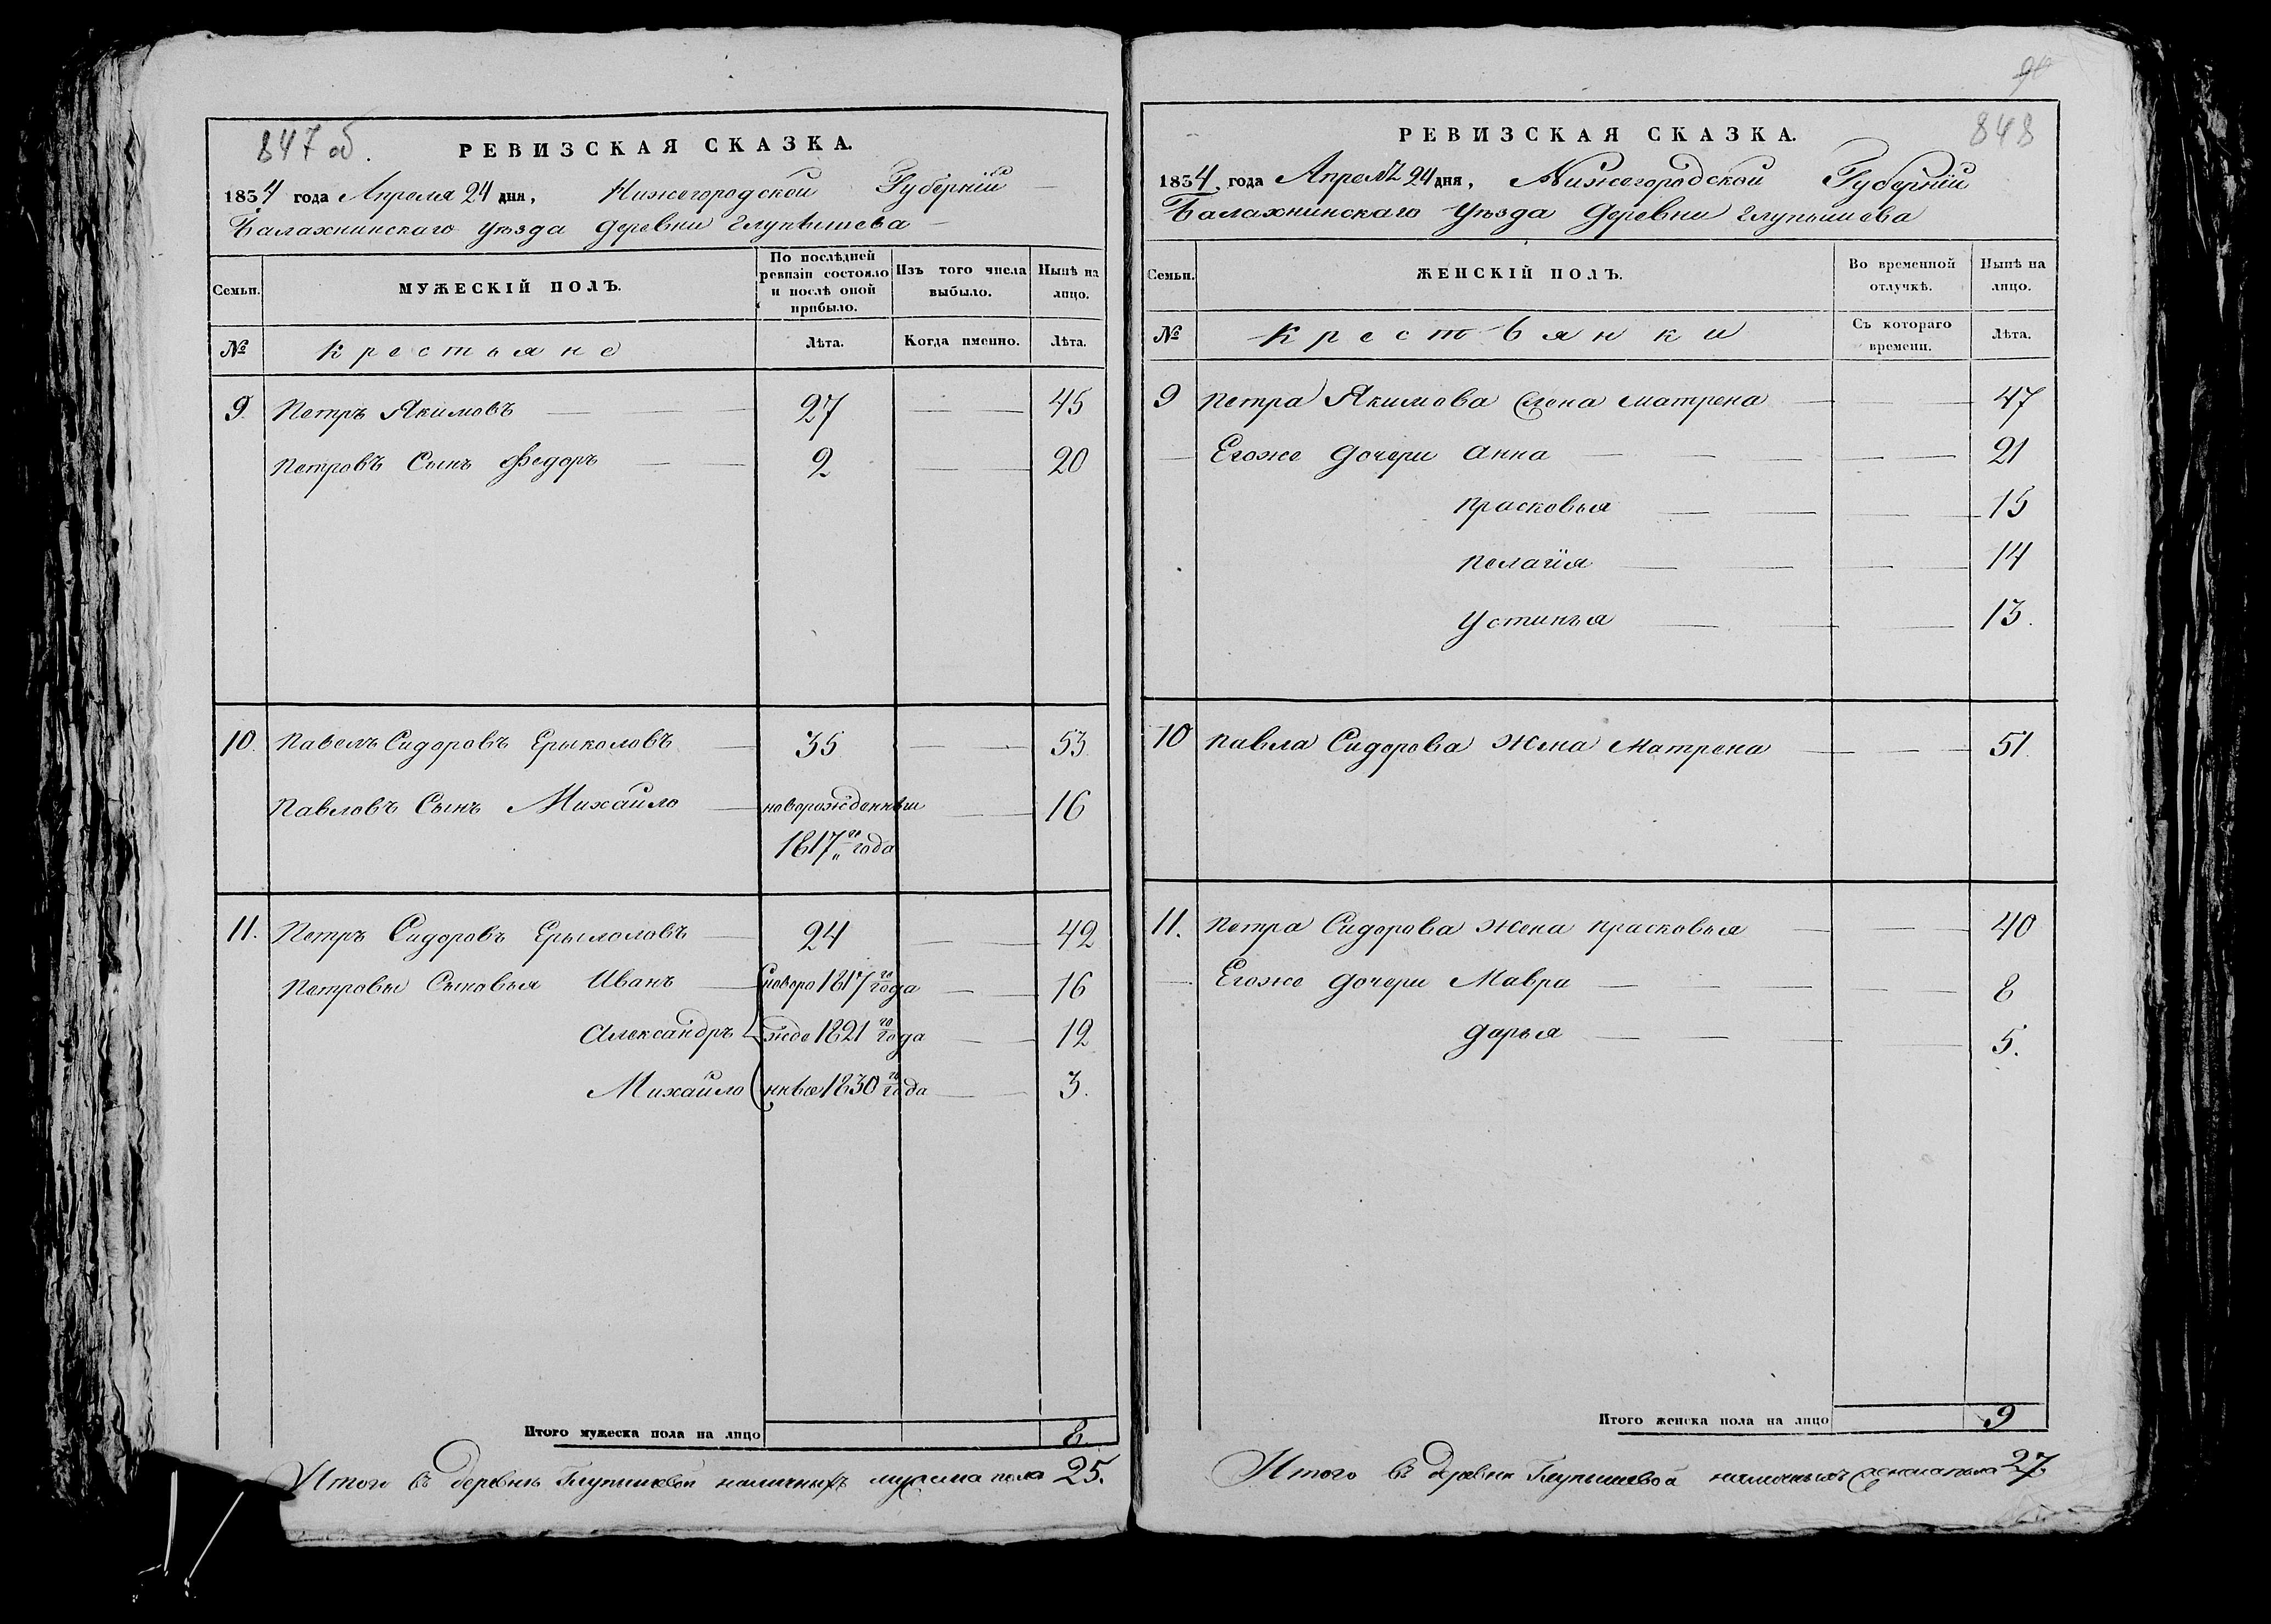 847 об.
РЕВИЗСКАЯ СКАЗКА.
1834 года Апреля 24 дня, Нижегородской Губерніи
Балахнинскаго уѣзда деревни Глупышева
Семьи.
МУЖЕСКІЙ ПОЛЪ.
По послѣдней ревизіи состояло и послѣ оной прибыло.
Изъ того числа выбыло.
Нынѣ на лицо.
№
Крестьяне
Лѣта.
Когда именно.
Лѣта.
9. Петръ Якимовъ 27 45
Петровъ Сынъ Федоръ 2 20
10. Павелъ Сидоровъ 35 53
Павловъ Сынъ Михайло новорожденный 16
1817го года
11. Петръ Сидоровъ 24 42
Петровы Сыновья Иванъ новоро 1817го года 16
Александръ жде 1821го года 12
Михайло нные 1830го года 3.
Итого мужеска пола на лицо 8
Итого въ деревне Глупышевой наличныхъ мужеска пола 25.
90
848
РЕВИЗСКАЯ СКАЗКА.
1834 года Апреля 24 дня, Нижегородской Губерніи
Балахнинскаго уѣзда деревни Глупышева
Семьи.
ЖЕНСКІЙ ПОЛЪ.
Во временной отлучкѣ.
Нынѣ на лицо.
№
Крестьянки
Съ котораго времени.
Лѣта.
9 Петра Якимова жена матрена 47
Егоже дочери Анна 21
Прасковья 15
Пелагія 14
Устинья 13.
10 Павла Сидорова жена Матрена 51
11. Петра Сидорова жена Прасковья 40
Егоже дочери Мавра 8
дарья 5.
Итого женска пола на лицо 9
Итого въ деревне Глупышевой наличныхъ женска пола 27